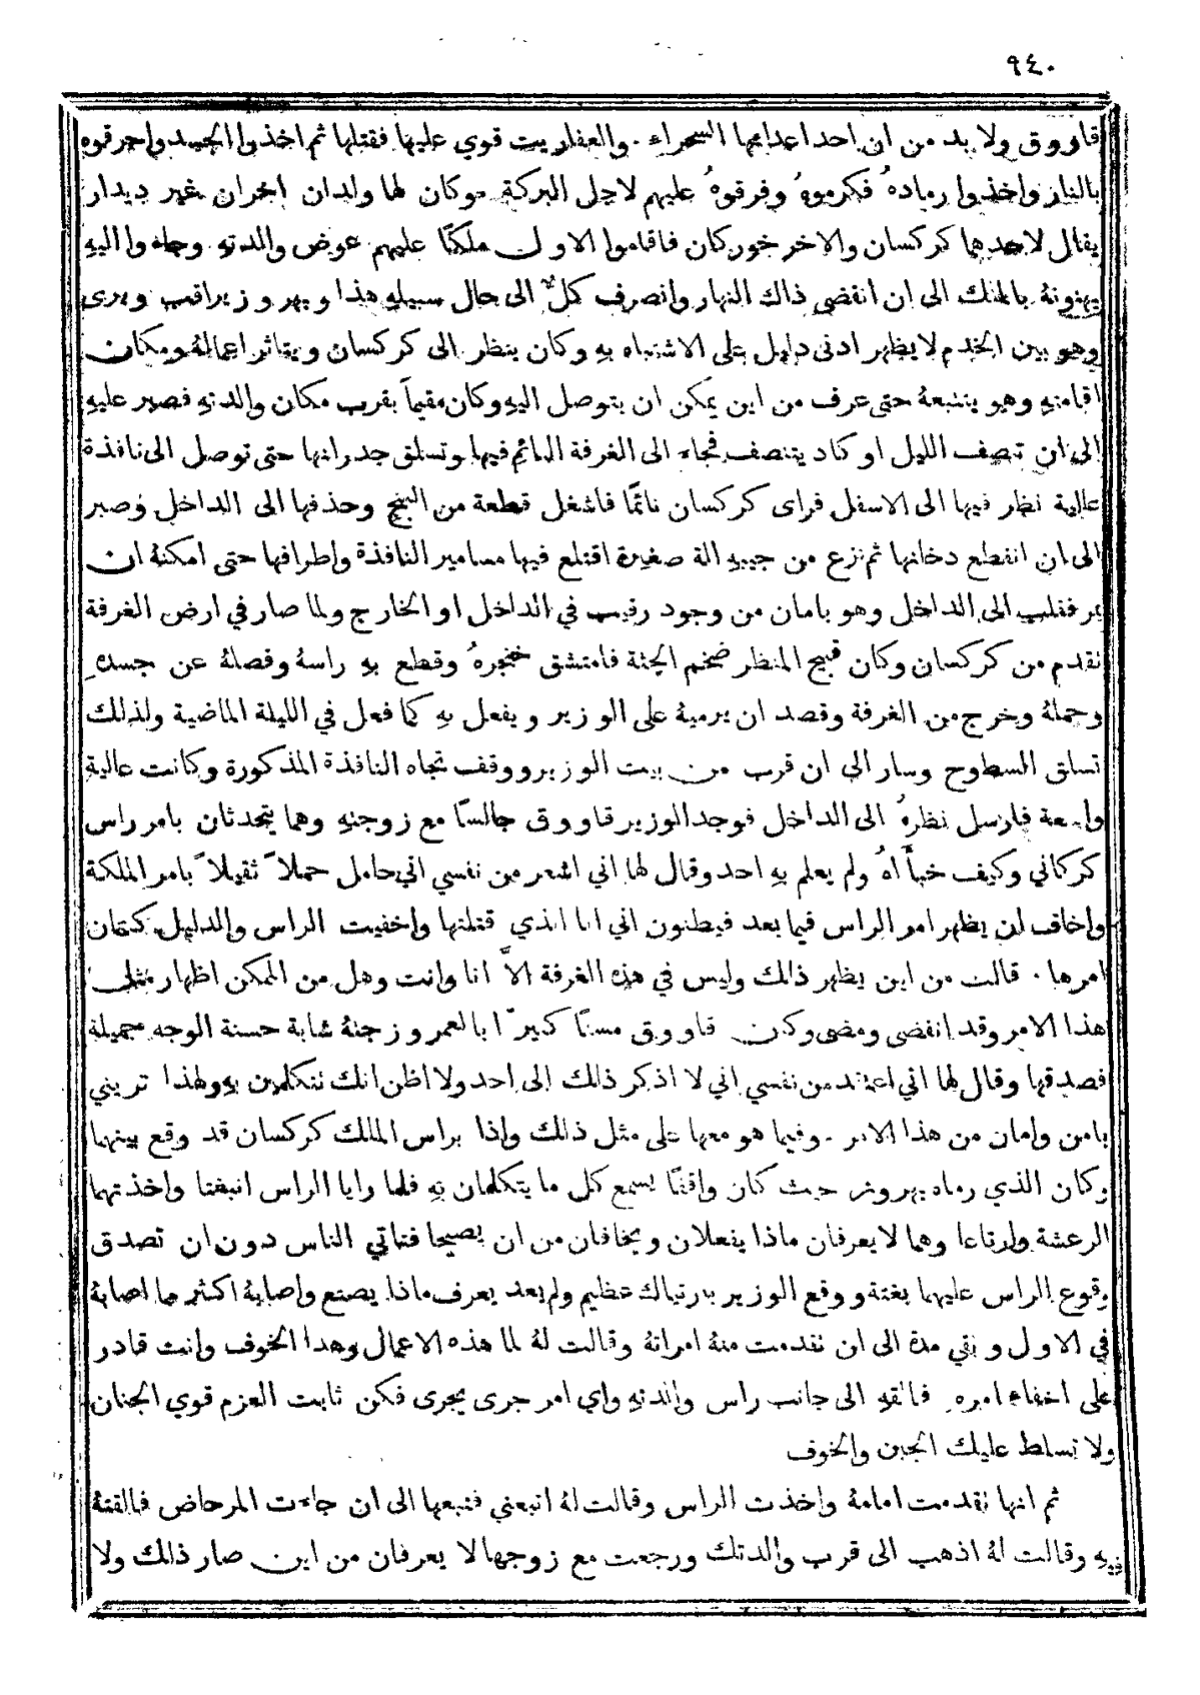 ٩٤٠
قاووق ولا بد من ان احد اعدامها السحراء . والعفاريت قوي عليها فقتلها ثم اخذوا الجسد واحرقوه
بالنار واخذوا رماده فكرموه وفرقوه عليهم لاجل البركة وكان لها ولدان اخران غير ديدار
يقال لاحدهما كركسان والاخر خوركان فاقاموا الاول ملكًا عليهم عوض والدته وجاءوا اليه
يهنونهُ بالملك الى ان انقضى ذاك النهار وانصرف كلٌ الى حال سبيله هذا وبهروز يراقب ويرى
وهو بين الخدم لا يظهر ادنى دليل على الاشتباه به وكان ينظر الى كركسان ويتاثر اعمالهُ ومكان
اقامته وهو يتتبعهُ حتى عرف من اين يمكن ان يتوصل اليه وكان مقيماً بقرب مكان والدته فصبر عليه
الى ان تنصف الليل او كاد يتنصف فجاء الى الغرفة النائم فيها وتسلق جدرانها حتى توصل الى نافذة
عالية نظر فيها الى الاسفل فراى كركسان نائمًا فاشغل قطعة من البنج وحذفها الى الداخل وصبر
الى ان انقطع دخانها ثم نزع من جيبهِ الة صغيرة اقتلع فيها مسامير النافذة واطرافها حتى امكنهُ ان
يمر فقلب الى الداخل وهو بامان من وجود رقيب في الداخل او الخارج ولما صار في ارض الغرفة
تقدم من كركسان وكان قبيح المنظر ضخم الجثة فامتشق خنجرهُ وقطع به راسهُ وفصلهُ عن جسدهِ
وحملهُ وخرج من الغرفة وقصد ان يرميهُ على الوزير ويفعل به كما فعل في الليلة الماضية ولذلك
تسلق السطوح وسار الى ان قرب من بيت الوزير ووقف تجاه النافذة المذكورة وكانت عالية
واسعة فارسل نظرهُ الى الداخل فوجد الوزير قاووق جالسًا مع زوجته وهما يتحدثان بامر راس
كركاني وكيف خبأاهُ ولم يعلم به احد وقال لها اني اشعر من نفسي اني حامل حملاً ثقيلاً بامر الملكة
واخاف ان يظهر امر الراس فيما بعد فيظنون اني انا الذي قتلتها واخفيت الراس والدليل كتمان
امرها . قالت من اين يظهر ذلك وليس في هذه الغرفة الاَّ انا وانت وهل من الممكن اظهار مثل
هذا الامر وقد انقضى ومضى وكان قاووق مسنًا كبيرًا بالعمر وزجتهُ شابة حسنة الوجه جميلة
فصدقها وقال لها اني اعتمد من نفسي اني لا اذكر ذلك الى احد ولا اظن انك تتكلمين به ولهذا تريني
بامن وامان من هذا الامر . وفيما هو معها على مثل ذلك واذا براس الملك كركسان قد وقع بينهما
وكان الذي رماه بهروز حيث كان واقفًا يسمع كل ما يتكلمان به فلما رايا الراس انبغتا واخذتهما
الرعشة وارتاعا وهما لا يعرفان ماذا يفعلان ويخافان من ان يصيحا فتاتي الناس دون ان تصدق
وقوع الراس عليهما بغتة ووقع الوزير بارتباك عظيم ولم يعد يعرف ماذا يصنع واصابهُ اكثر مما اصابهُ
في الاول وبقي مدة الى ان تقدمت منهُ امراتهُ وقالت لهُ لما هذه الاعمال وهذا الخوف وانت قادر
على اخفاء امره فالقهِ الى جانب راس والدته واي امر جرى يجرى فكن ثابت العزم قوي الجنان
ولا تسلط عليك الجبن والخوف
ثم انها تقدمت امامهُ واخذت الراس وقالت لهُ اتبعني فتبعها الى ان جاءت المرحاض فالقتهُ
فيه وقالت لهُ اذهب الى قرب والدتك ورجعت مع زوجها لا يعرفان من اين صار ذلك ولا